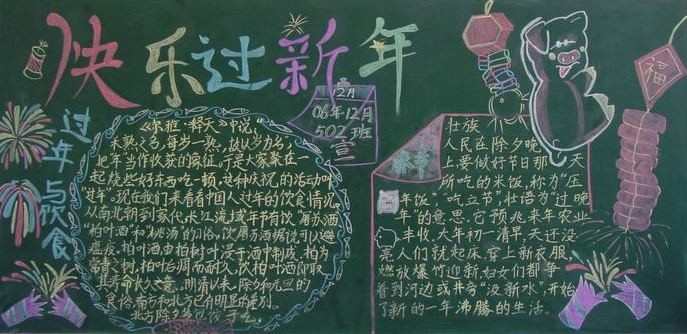 快乐过新年
12月
06年12月
502班
宣
过年与饮食
《尔雅·释天》中说，
禾熟之名，每岁一熟，故以岁为名，
把年当作收获的象征。于是大家聚在一
起烧些好东西吃一顿，这种庆祝的活动叫
“过年”。现在我们来看看中国人过年的饮食情况，
从南北朝到宋代，长江流域年节有饮“屠苏酒”
“柏叶酒”和“桃汤”的习俗，饮屠苏酒据说可以避
瘟疫，柏叶酒由柏树叶浸于酒中制成，柏为
常青之树，柏枝后凋而耐久，饮柏叶酒
其寿命长久之意。明清以来，除夕和元旦的
食俗，南方和北方已有明显的差别。
北方除夕
春节
福
壮族
人民在除夕晚
上要做好节日那一天
所吃的米饭，称为“压
年饭”“吃立节”，壮语为“过晚
年”的意思，它预兆来年农业
丰收，大年初一清早，天还没
亮人们就起床，穿上新衣服，
燃放爆竹迎新，妇女们都争
着到河边或井旁“汲新水”，开始
了新的一年沸腾的生活。